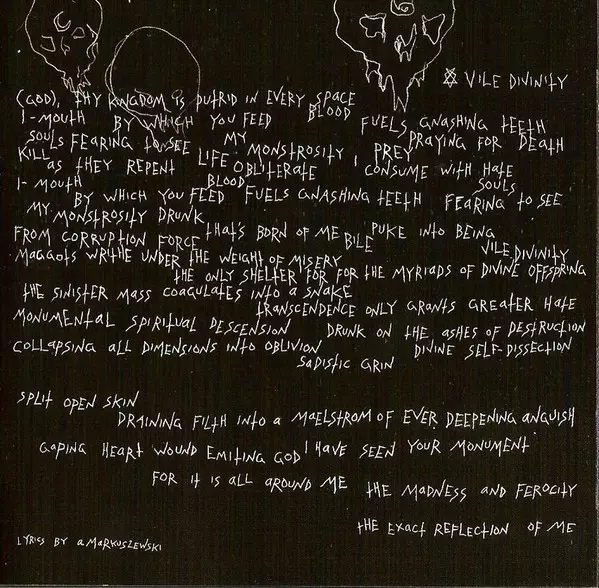 VILE DIVINITY
(GOD), THY KINGDOM IS PUTRID IN EVERY SPACE
I-MOUTH BY WHICH YOU FEED BLOOD FUELS GNASHING TEETH
SOULS FEARING TO SEE MY MONSTROSITY PRAYING FOR DEATH
KILL AS THEY REPENT LIFE OBLITERATE I PREY CONSUME WITH HATE
I-MOUTH BY WHICH YOU FEED BLOOD FUELS GNASHING TEETH SOULS FEARING TO SEE
MY MONSTROSITY DRUNK
FROM CORRUPTION FORCE THAT'S BORN OF ME BILE PUKE INTO BEING VILE DIVINITY
MAGGOTS WRITHE UNDER THE WEIGHT OF MISERY
THE ONLY SHELTER FOR FOR THE MYRIADS OF DIVINE OFFSPRING
THE SINISTER MASS COAGULATES INTO A SNAKE
TRANSCENDENCE ONLY GRANTS GREATER HATE
MONUMENTAL SPIRITUAL DESCENSION DRUNK ON THE ASHES OF DESTRUCTION
COLLAPSING ALL DIMENSIONS INTO OBLIVION DIVINE SELF-DISSECTION
SADISTIC GRIN
SPLIT OPEN SKIN
DRAINING FILTH INTO A MAELSTROM OF EVER DEEPENING ANGUISH
GAPING HEART WOUND EMITING GOD I HAVE SEEN YOUR MONUMENT
FOR IT IS ALL AROUND ME THE MADNESS AND FEROCITY
THE EXACT REFLECTION OF ME
LYRICS BY A.MARKUSZEWSKI